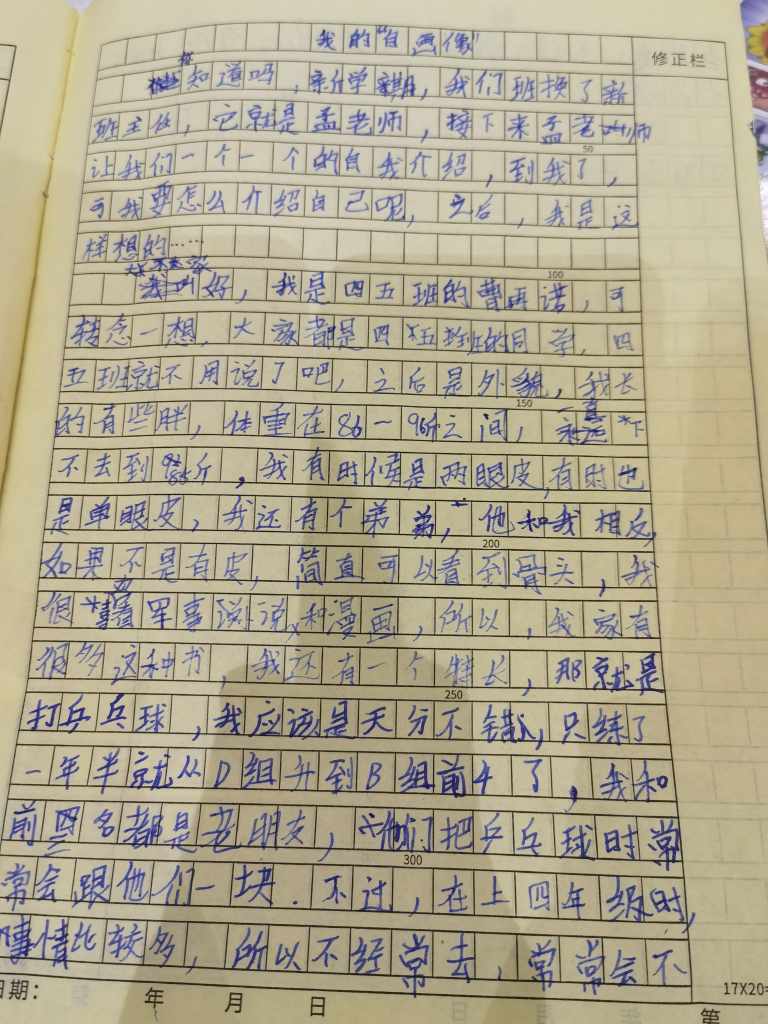 我的"自画像"
修正栏
你
知道吗，新学期，我们班换了新
班主任，它就是孟老师，接下来孟老师
50
让我们一个一个的自我介绍，到我了，
可我要怎么介绍自己呢，之后，我是这
样想的……
100
大家
好，我是四五班的曹再诺，可
转念一想，大家都是四五班的同学，四
五班就不用说了吧，之后是外貌，我长
150
的有些胖，体重在86一96斤之间，一直下
不去到85斤，我有时候是两眼皮，有时也
是单眼皮，我还有个弟弟，他和我相反，
200
如果不是有皮，简直可以看到骨头，我
很喜看军事小说和漫画，所以，我家有
很多这种书，我还有一个特长，那就是
250
打乒乓球，我应该是天分不错，只练了
一年半就从D组升到B组前4了，我和
前四名都是老朋友，他们把乒乓球时常
300
常会跟他们一块．不过，在上四年级时，
事情比较多，所以不经常去，常常会不
日期：
年
月
日
17X20=
第